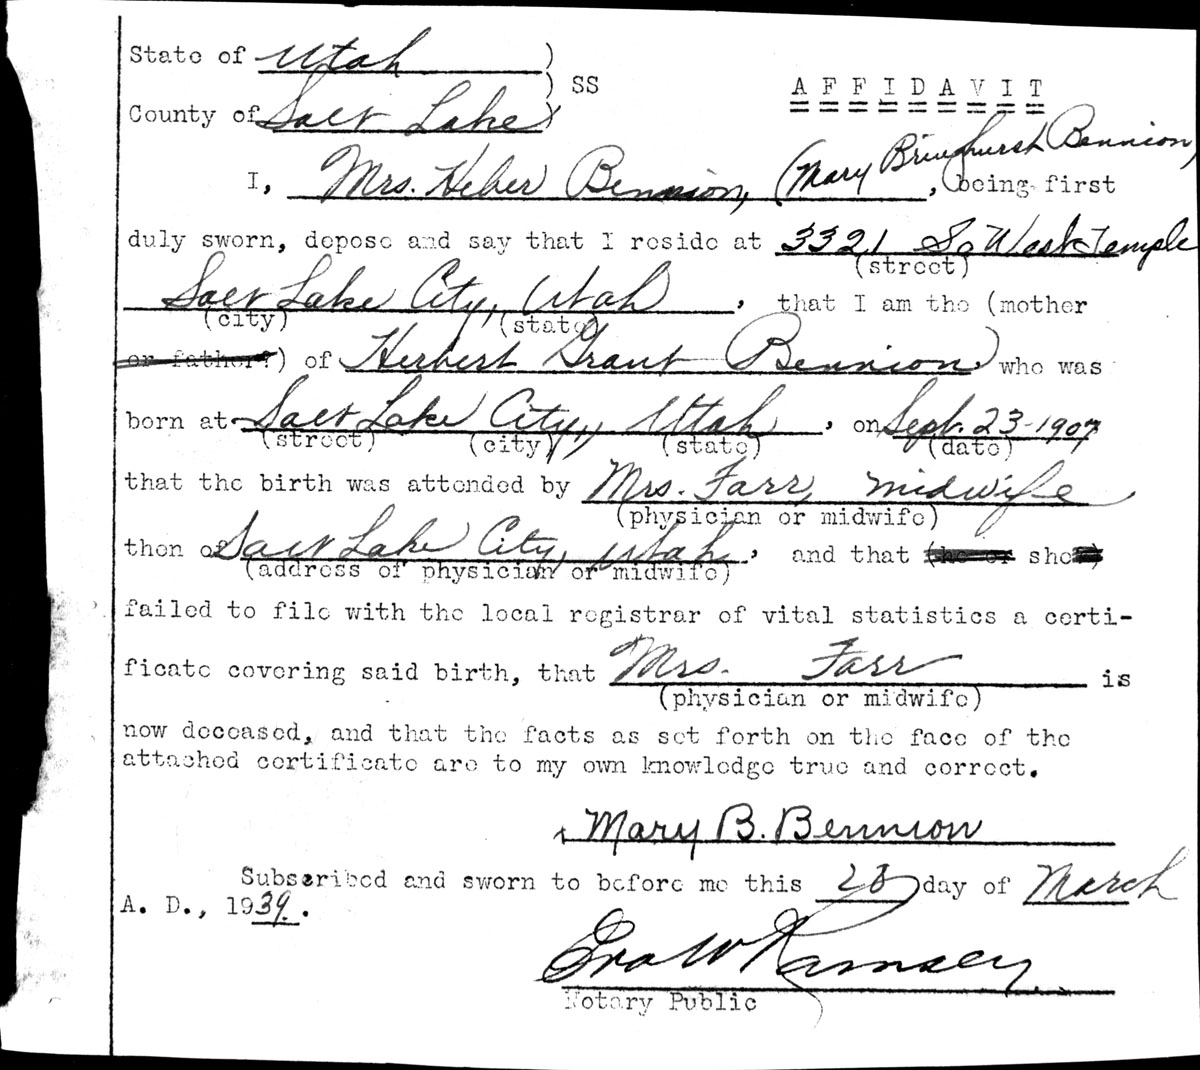 State of Utah )
) SS
A F F I D A V I T
County of Salt Lake )
I, Mrs. Heber Bennion, (Mary Bringhurst Bennion), being first
duly sworn, depose and say that I reside at 3321 So West Temple
(street)
Salt Lake City, Utah, that I am the (mother
(city) (state)
or father?) of Herbert Grant Bennion who was
born at Salt Lake City, Utah, on Sept. 23-1907
(street) (city) (state) (date)
that the birth was attended by Mrs. Farr, midwife
(physician or midwife)
then of Salt Lake City, Utah, and that (he or she)
(address of physician or midwife)
failed to file with the local registrar of vital statistics a certi-
ficate covering said birth, that Mrs. Farr is
(physician or midwife)
now deceased, and that the facts as set forth on the face of the
attached certificate are to my own knowledge true and correct.
Mary B. Bennion
Subscribed and sworn to before me this day of March
A. D., 1939.
Ramsey
Notary Public